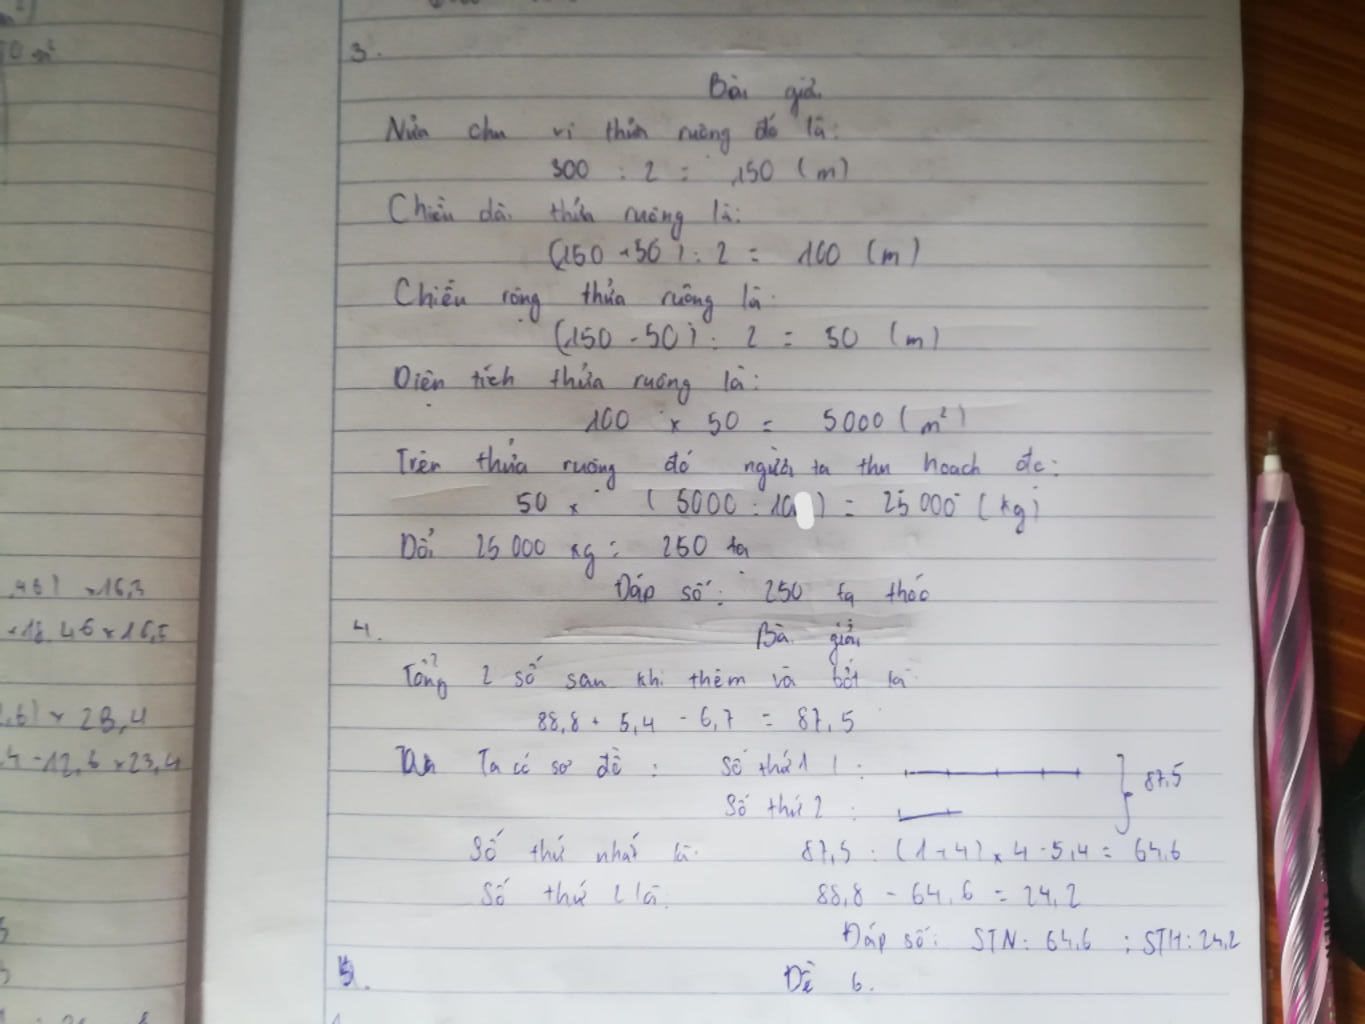 50 m²
3.
Bài giải
Nửa chu vi thửa ruộng đó là:
300 : 2 = 150 (m)
Chiều dài thửa ruộng là:
(150 + 50) : 2 = 100 (m)
Chiều rộng thửa ruộng là:
(150 - 50) : 2 = 50 (m)
Diện tích thửa ruộng là:
100 x 50 = 5000 (m²)
Trên thửa ruộng đó người ta thu hoạch đc:
50 x (5000 : 10) = 25 000 (kg)
Đổi 25 000 kg = 250 tạ
Đáp số: 250 tạ thóc
4.
Bài giải
Tổng 2 số sau khi thêm và bớt là
88,8 + 5,4 - 6,7 = 87,5
Ta có sơ đồ : Số thứ 1 :
87,5
Số thứ 2 :
Số thứ nhất là: 87,5 : (1 + 4) x 4 - 5,4 = 64,6
Số thứ 2 là: 88,8 - 64,6 = 24,2
Đáp số: STN: 64,6 ; STH: 24,2
5.
Đề 6.
,46) x 16,3
+ 18,46 x 16,5
,6) x 23,4
4 - 12,6 x 23,4